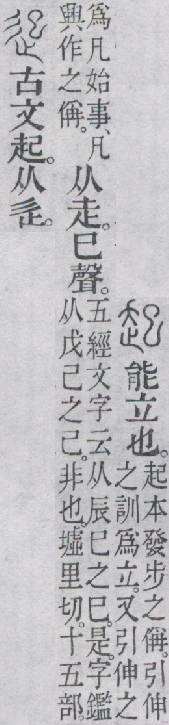 起 能立也。起本發步之偁。引伸之訓爲立。又引伸之
爲凡始事、凡興作之偁。从走。巳聲。五經文字云从辰巳之巳。是。字鑑从戊己之己。非也。墟里切。十五部。
古文起。从辵。